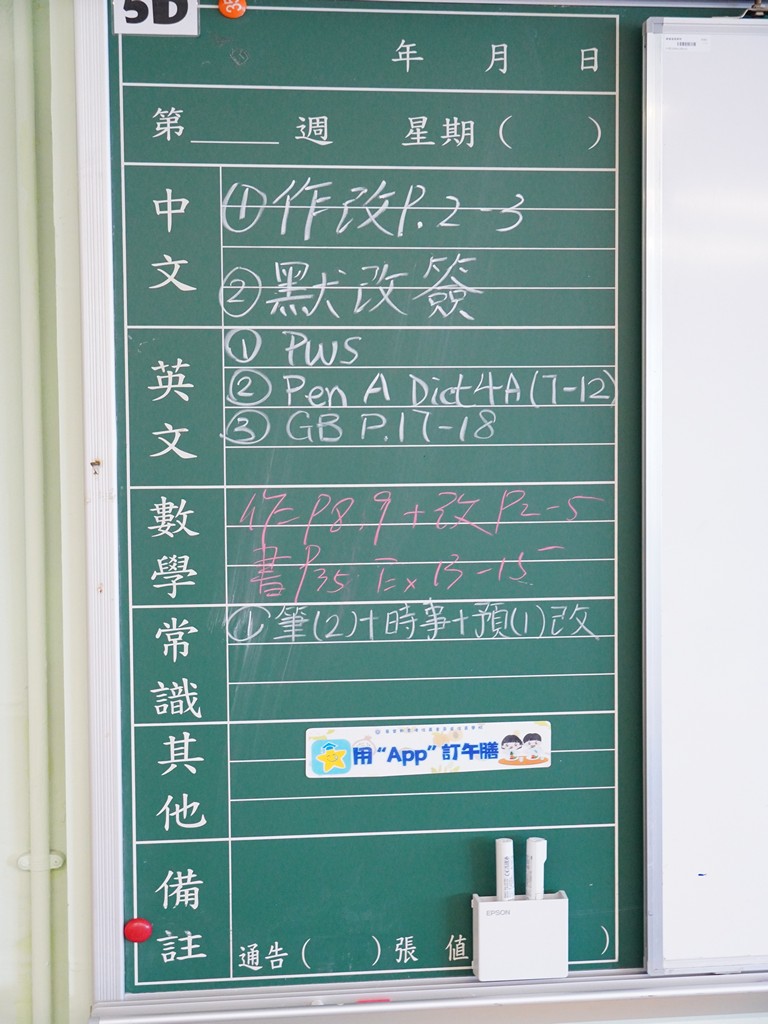 5D
年 月 日
第____週 星期( )
中文
①作改P.2-3
②默改簽
英文
① PWS
② Pen A Dict4A(7-12)
③ GB P.17-18
數學
作= P8,9+改 P2-5
書P35 Ex 13-15
常識
①筆(2)+時事+預(1)改
其他
用“App”訂午膳
備註
EPSON
通告( )張 值 )